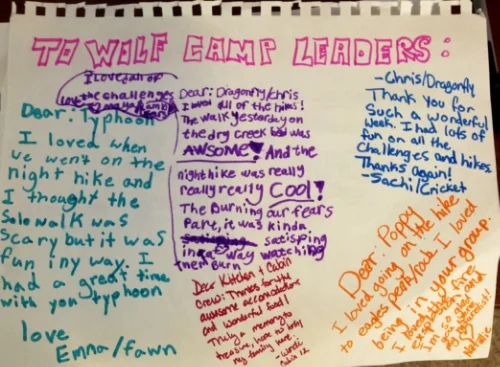 TO WOLF CAMP LEADERS:
I Love all of
the challenges
Dear: Typhoon
I loved when
we went on the
night hike and
I thought the
Solo walk was
scary but it was
fun in y way. I
had a great time
with you typhoon
love
Emna/fawn
Dear: Dragonfly/Chris
I loved all of the hikes!
The walk yesterday on
the dry Creek bed was
AWSOME! And the
night hike was really
really really COOL!
The Burning our fears
Part, it was kinda
satisping
in a way watching
them burn
Dear Kitchen + Cabin
Crew: Thanks for the
awesome accomodations
and wonderful food!
Truly a memory to
treasure, hope to bring
my family here.
-Chris/Dragonfly
Thank you for
Such a wonderful
week. I had lots of
fun on all the
challenges and hikes
Thanks again!
-Sachi/Cricket
Dear: Poppy
I loved going on the hike
to eagles peak/rock. I loved
being in your group.
I loved the fire
and
I'm so glad